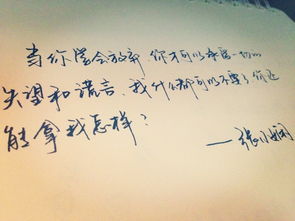 当你学会放弃 你才可以承受一切的
失望和谎言、我什么都可以不要了你还
能拿我怎样?
——张小娴